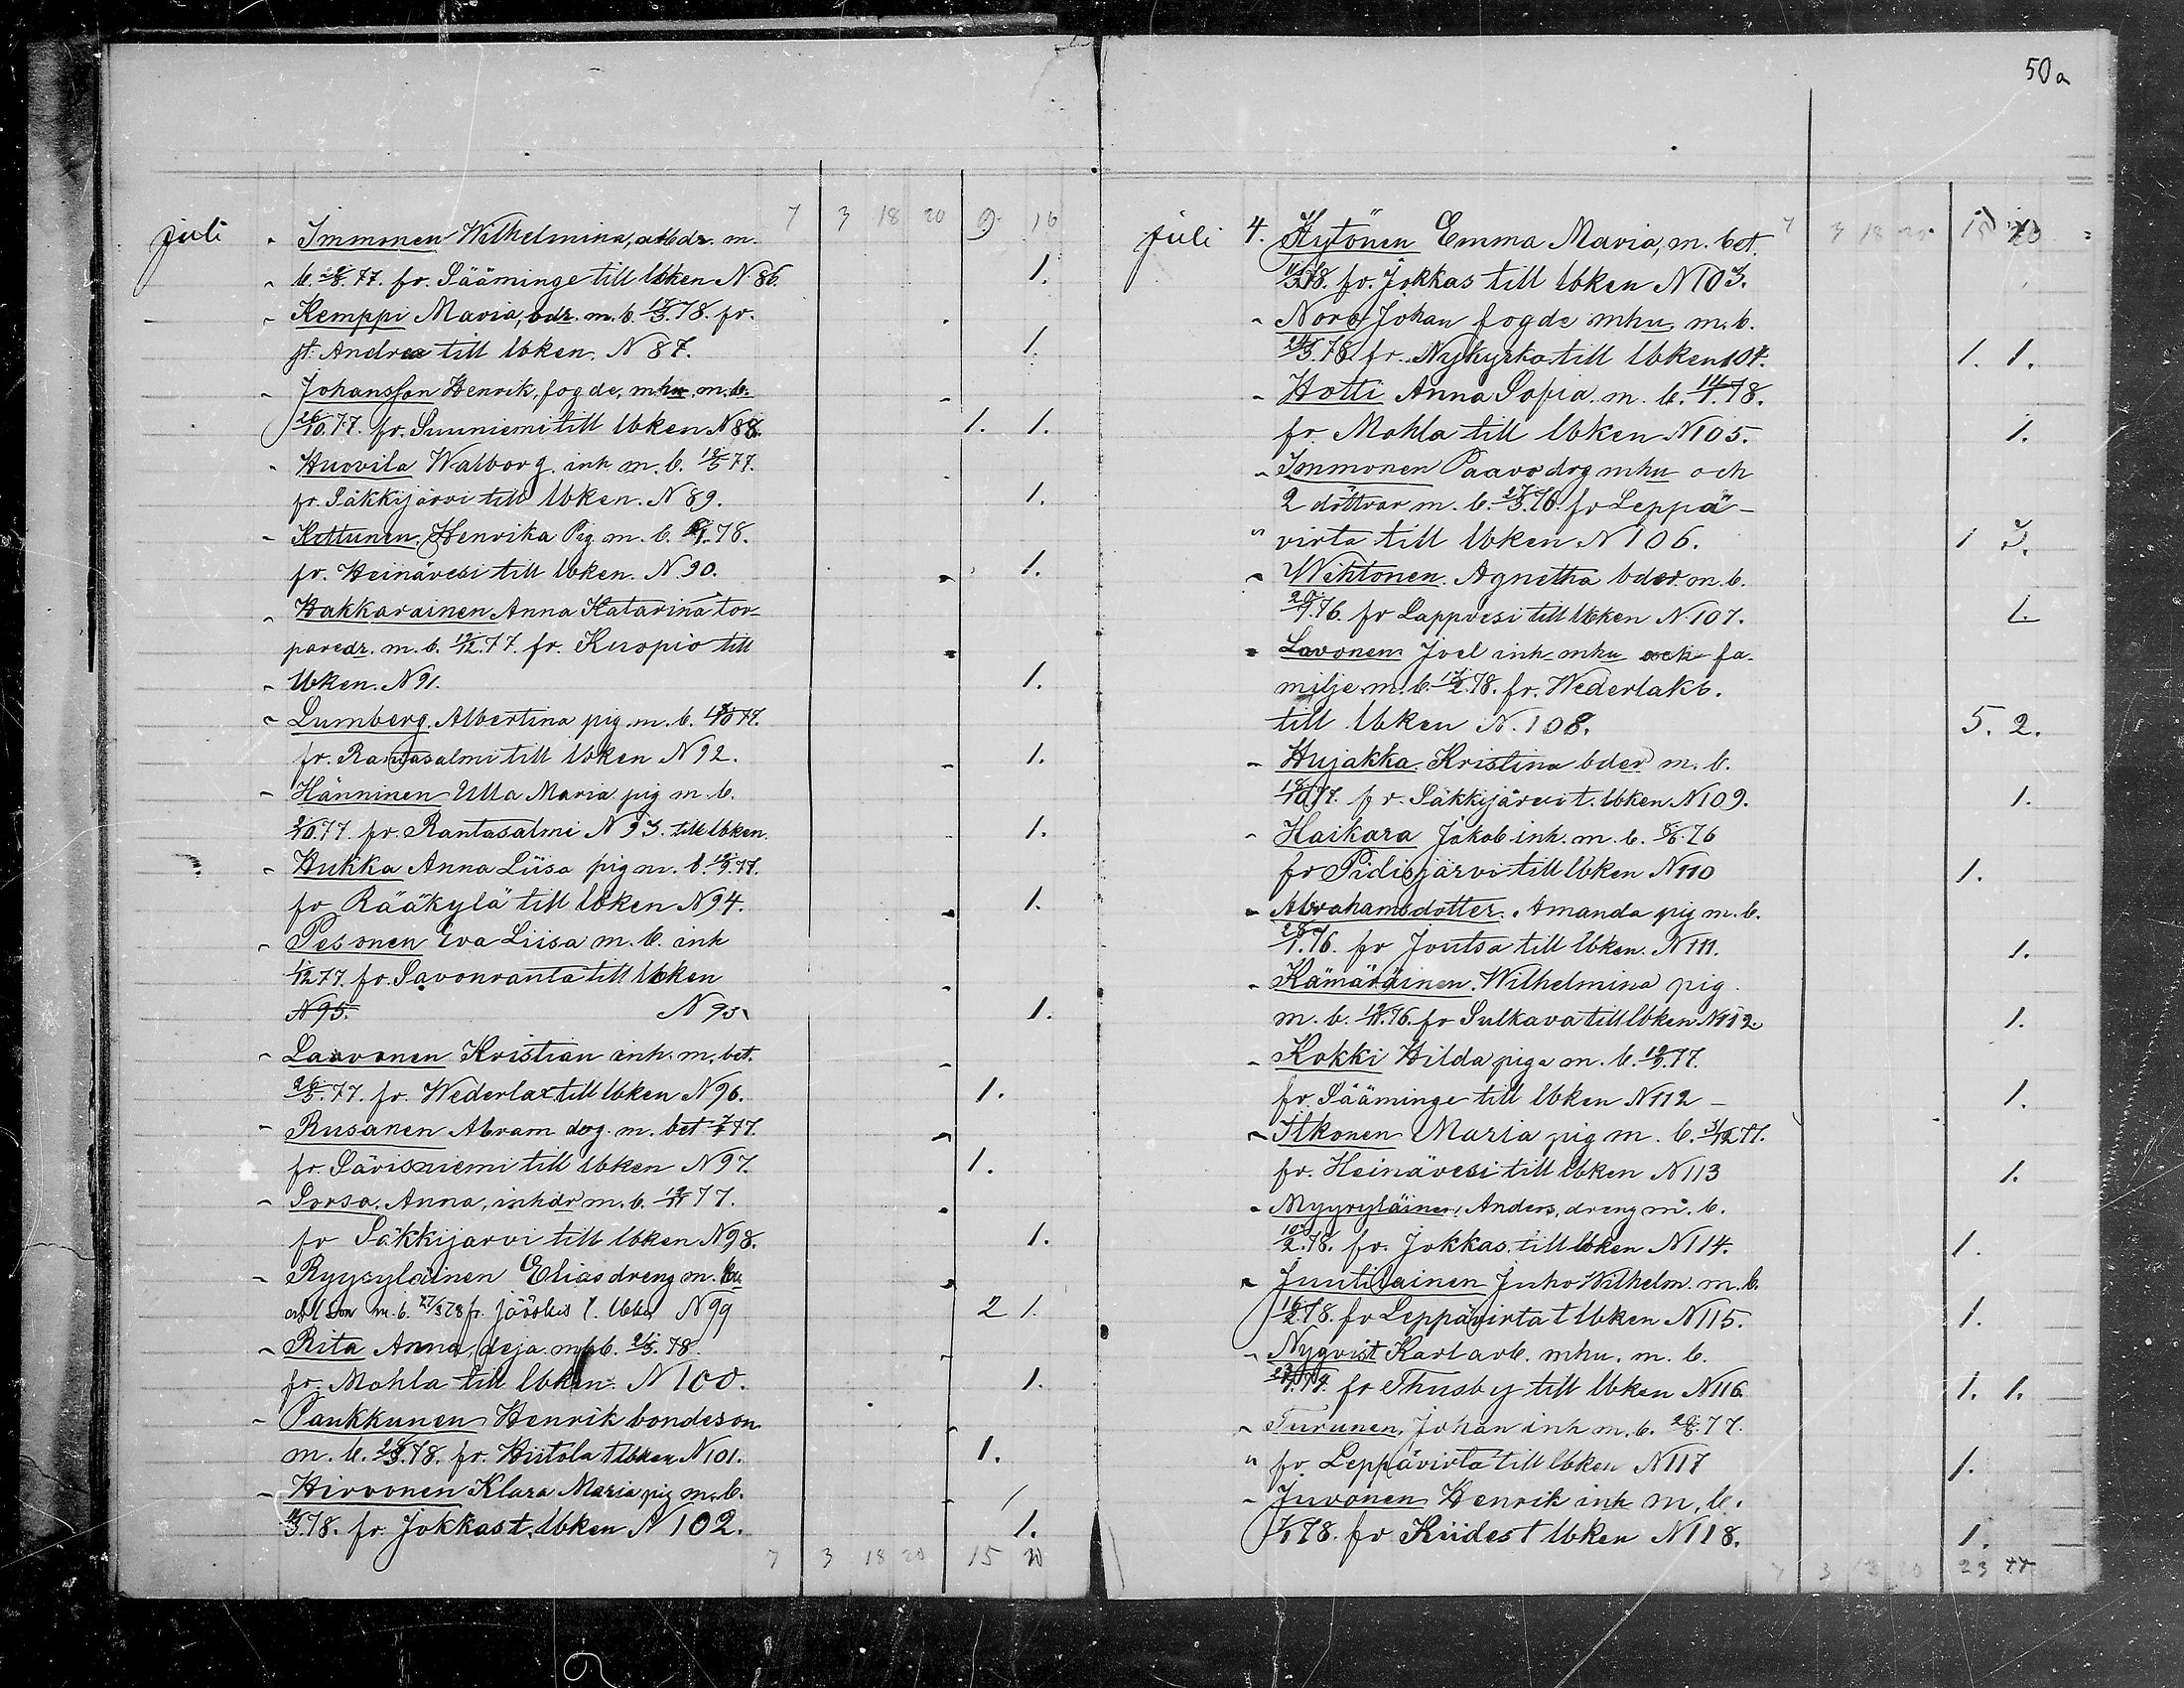 50a
7 3 18 20 9 16
juli " Immonen Wilhelmina, arbdr. m.
" b. 28/8.77. fr. Sääminge till lbken N 86. 1.
" Kemppi Maria, bdr. m. b. 18/3.78. fr.
St. Andrea till lbken. N 87. 1.
" Johansson Henrik, fogde, mhu. m.b.
26/10.77. fr. Suuniemi till lbken N 88. 1. 1.
" Huovila Walborg. inh m. b. 18/5 77.
fr. Säkkijärvi till lbken. N 89. 1.
" Kottunen, Henrika Pig m. b. /1.78.
fr. Heinävesi till lbken. N 90. 1.
" Hakkarainen Anna Katarina tor-
paredr. m. b. 19/12.77. fr. Kuopio till
" lbken. N 91. 1.
" Lumberg. Albertina pig m. b. 18/10 77.
fr. Rantasalmi till lbken N 92. 1.
" Hänninen Ulla Maria pig m. b.
2/10.77 fr. Rantasalmi N 93. till lbken. 1.
" Hukka Anna Liisa pig m. b. 18/9.77.
fr Rääkylä till lbken N 94. 1.
" Pesonen Eva Liisa m. b. inh
1/12 77. fr. Savonranta till lbken
N 95. N 95 1.
" Laavonen Kristian inh. m. bet.
26/5.77. fr. Wederlax till lbken N 96. 1.
" Rusanen Abram dog. m. bet 77.
fr. Sävisniemi till lbken N 97. 1.
" Sorsa. Anna, inhdr m. b. 77.
fr Säkkijarvi till lbken N 98. 1.
" Ryysyläinen Elias dreng m. hu
och 1 son m. b. 27/3 78 fr. Jääskis t. lbken N 99 2 1.
" Rita Anna, deja m. b. 21/3. 78.
fr. Mohla till lbken N 100. 1.
" Paukkunen Henrik bondeson
m. b. 28/3.78. fr. Hiitola t lbken N 101. 1.
" Hirvonen Klara Maria pig m. b.
/3.78. fr. Jokkas t. lbken N 102. 1.
7 3 18 20 15 20
7 3 18 20 15 20
juli 4. Kytönen Emma Maria, m. bet.
78. fr. Jokkas till lbken N 103.
" Noro Johan fogde mhu. m. b.
24/3.78. fr. Nykyrka till lbken 104. 1. 1.
" Hotti Anna Sofia. m. b. 14/1.78.
fr. Mohla till lbken N 105. 1.
" Immonen Paavo drg mhu och
2 döttrar m. b. 27/3.76. fr Leppä-
" virta till lbken N 106. 1 3.
" Wihtonen. Agnetha bder. m. b.
29/1.76. fr Lappvesi till lbken N 107. 1.
" Lavonen Joel inh mhu och fa-
milje m. b. 17/2.78. fr. Wederlaks.
till lbken N. 108. 5. 2.
" Hujakka Kristina bder m. b.
18/10 77. fr. Säkkijärvi t. lbken N 109. 1.
" Haikara Jakob inh. m. b. 8/6.76
fr Pidisjärvi till lbken N 110 1.
" Abrahamsdotter. Amanda pig m. b.
28/1.76. fr Joutsa till lbken. N 111. 1.
" Kämäräinen. Wilhelmina pig.
m. b. 18/11.76. fr Sulkava till lbken N 112. 1.
" Kokki Hilda piga m. b. 19/9.77.
fr. Sääminge till lbken N 112 — 1.
" Itkonen Maria pig m. b. 31/12 77.
fr. Heinävesi till lbken N 113 1.
" Myyryläinen, Anders, dreng m. b.
10/2.78. fr. Jokkas. till lbken N 114. 1.
" Juutilainen Juho Wilhelm m. b.
16/2.78. fr Leppävirta t lbken N 115. 1.
" Nyqvist Karl arb. mhu. m. b.
fr Thusby till lbken N 116. 1. 1.
" Turunen, Johan inh m. b. 29/8.77.
" fr. Leppävirta till lbken N 117 1.
" Juvonen Henrik inh m. b.
7/1 78. fr Kiides t lbken N 118. 1.
7 3 18 20 23